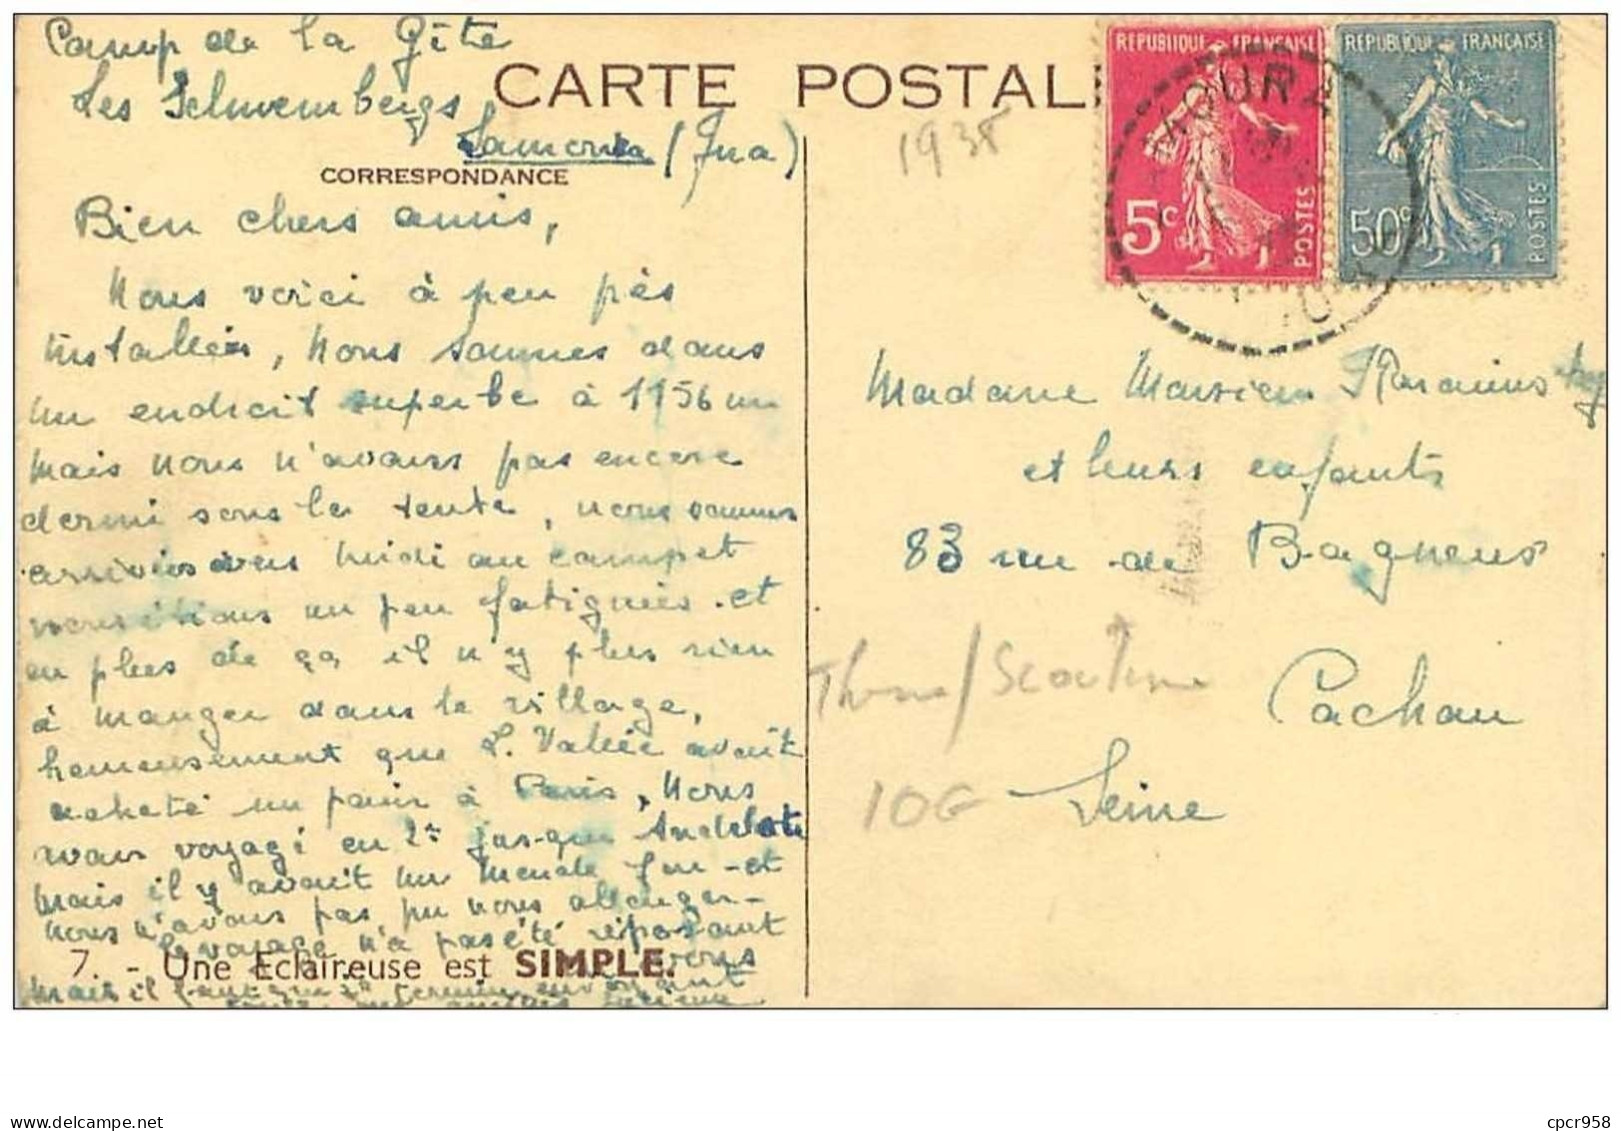 Camp de la Gîte
Les
Lamoura (Jura)
CARTE POSTALE
CORRESPONDANCE
1938
REPUBLIQUE FRANÇAISE
5c
POSTES
REPUBLIQUE FRANÇAISE
50c
POSTES
Bien chers amis,
Nous voici à peu près
installées, nous sommes dans
un endroit superbe à 1156 m
mais nous n'avons pas encore
dormi sous la tente, nous sommes
arrivées vers midi au camp et
nous étions un peu fatiguées et
en plus de ça il n'y plus rien
à manger dans le village,
heureusement que L. Vallée avait
acheté un pain à Paris, Nous
avons voyagé en 2e jusque Andelot
mais il y avait un monde fou et
nous n'avons pas pu nous allonger
le voyage n'a pas été reposant
7. - Une Eclaireuse est SIMPLE.
mais il faut
Madame Monsieur
et leurs enfants
83 rue de Bagneux
Cachan
Seine
Theme/Scoutisme
10G
cpcr958